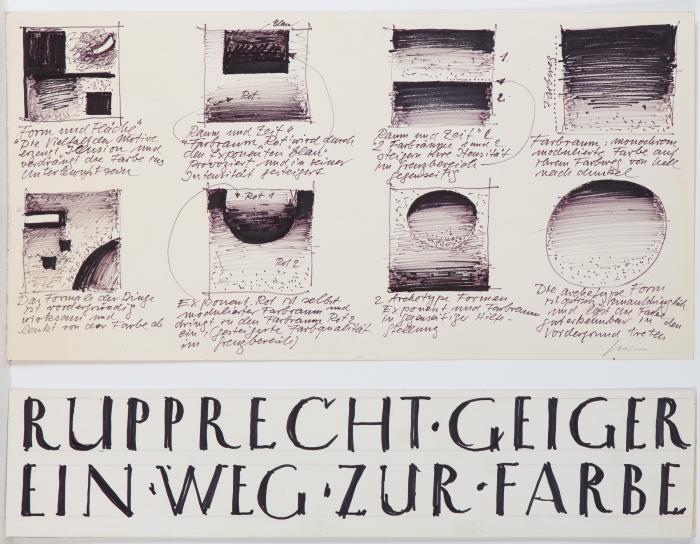 Blau
Rot
1.
2
Farbweg
Form und Fläche"
"Die Vielfalt der Motive
erzeugt Tension und
verdrängt die Farbe ins
Unterbewußtsein
Raum und Zeit"
Farbraum „Rot" wird durch
den Exponenten „Blau"
provoziert und in seiner
Intensität gesteigert
Raum und Zeit" 2
2 Farbräume 1 und 2
steigern ihre Itensität
im Grenzbereich
gegenseitig
Farbraum: monochrom
modulierte Farbe auf
ihrem Farbweg von hell
nach dunkel
Rot 1
Rot 2
Das Formale der Dinge
ist vordergründig
wirksam und
lenkt von der Farbe ab
Exponent Rot ist selbst
modulierter Farbraum und
dringt in den Farbraum Rot 2
ein (gesteigerte Farbqualität
im Grenzbereich)
2 Archetype Formen
Exponent und Farbraum
in gegenseitiger Hilfe-
stellung
Die archetype Form
ist optisch unaufdringlich
und läßt die Farbe
gut erkennbar in den
Vordergrund treten
RUPPRECHT·GEIGER
EIN·WEG·ZUR·FARBE